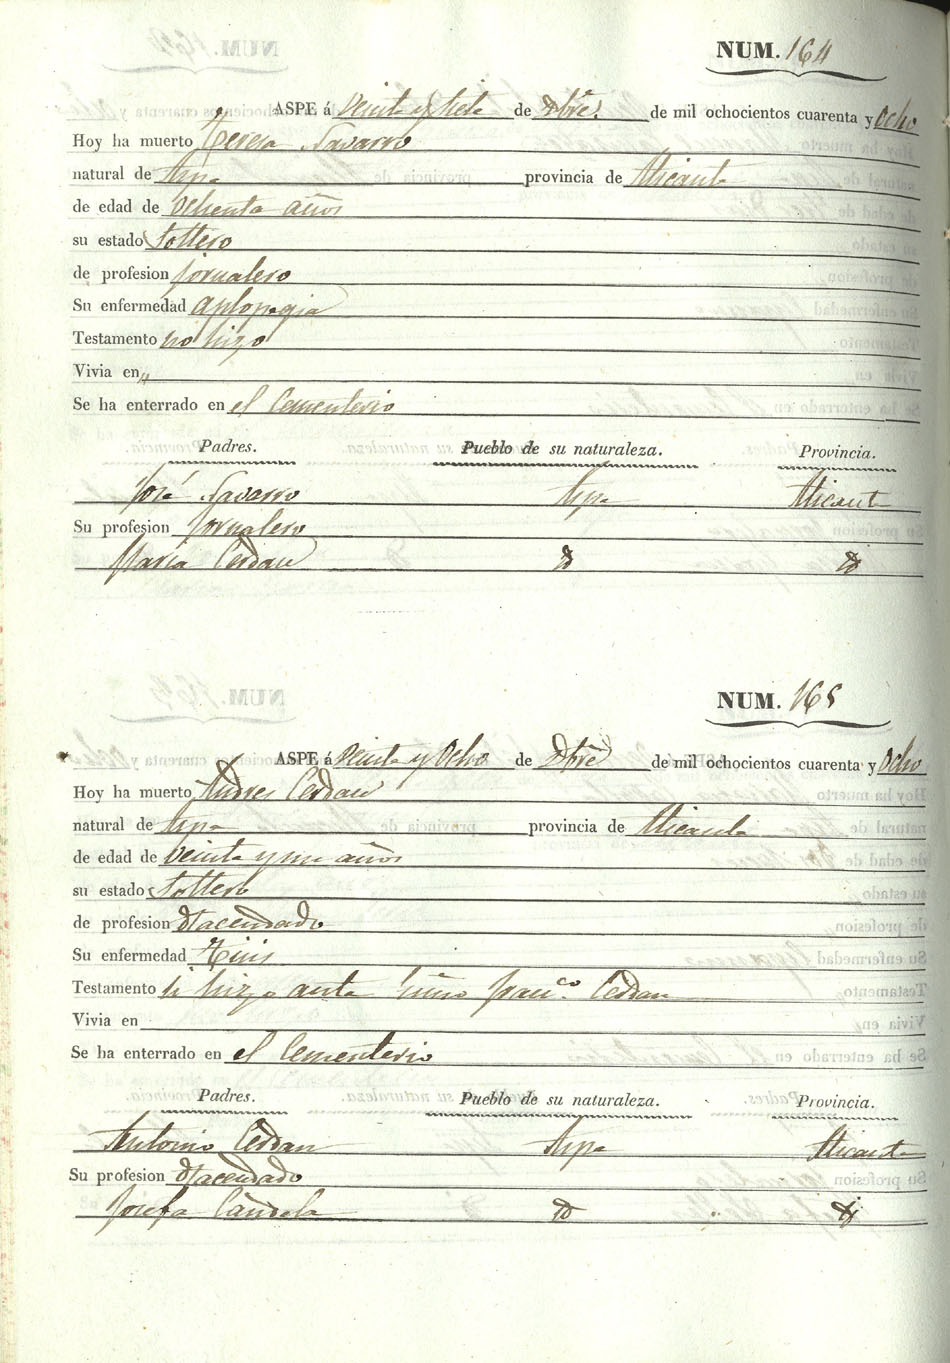 NUM. 164
ASPE á Veinte y siete de Dbre. de mil ochocientos cuarenta y Ocho
Hoy ha muerto Teresa Navarro
natural de Aspe provincia de Alicante
de edad de Ochenta años
su estado Soltero
de profesion jornalero
Su enfermedad Aplopegia
Testamento no hizo
Vivia en "
Se ha enterrado en el Cementerio
Padres. Pueblo de su naturaleza. Provincia.
José Navarro Aspe Alicante
Su profesion Jornalero
Maria Cerdan
NUM. 165
ASPE á Veinte y Ocho de Dbre de mil ochocientos cuarenta y Ocho
Hoy ha muerto Andres Cerdan
natural de Aspe provincia de Alicante
de edad de Veinte y un años
su estado Soltero
de profesion Hacendado
Su enfermedad Tisis
Testamento si hizo ante Franco. Cerdan
Vivia en
Se ha enterrado en el Cementerio
Padres. Pueblo de su naturaleza. Provincia.
Antonio Cerdan Aspe Alicante
Su profesion Hacendado
Josefa Candela